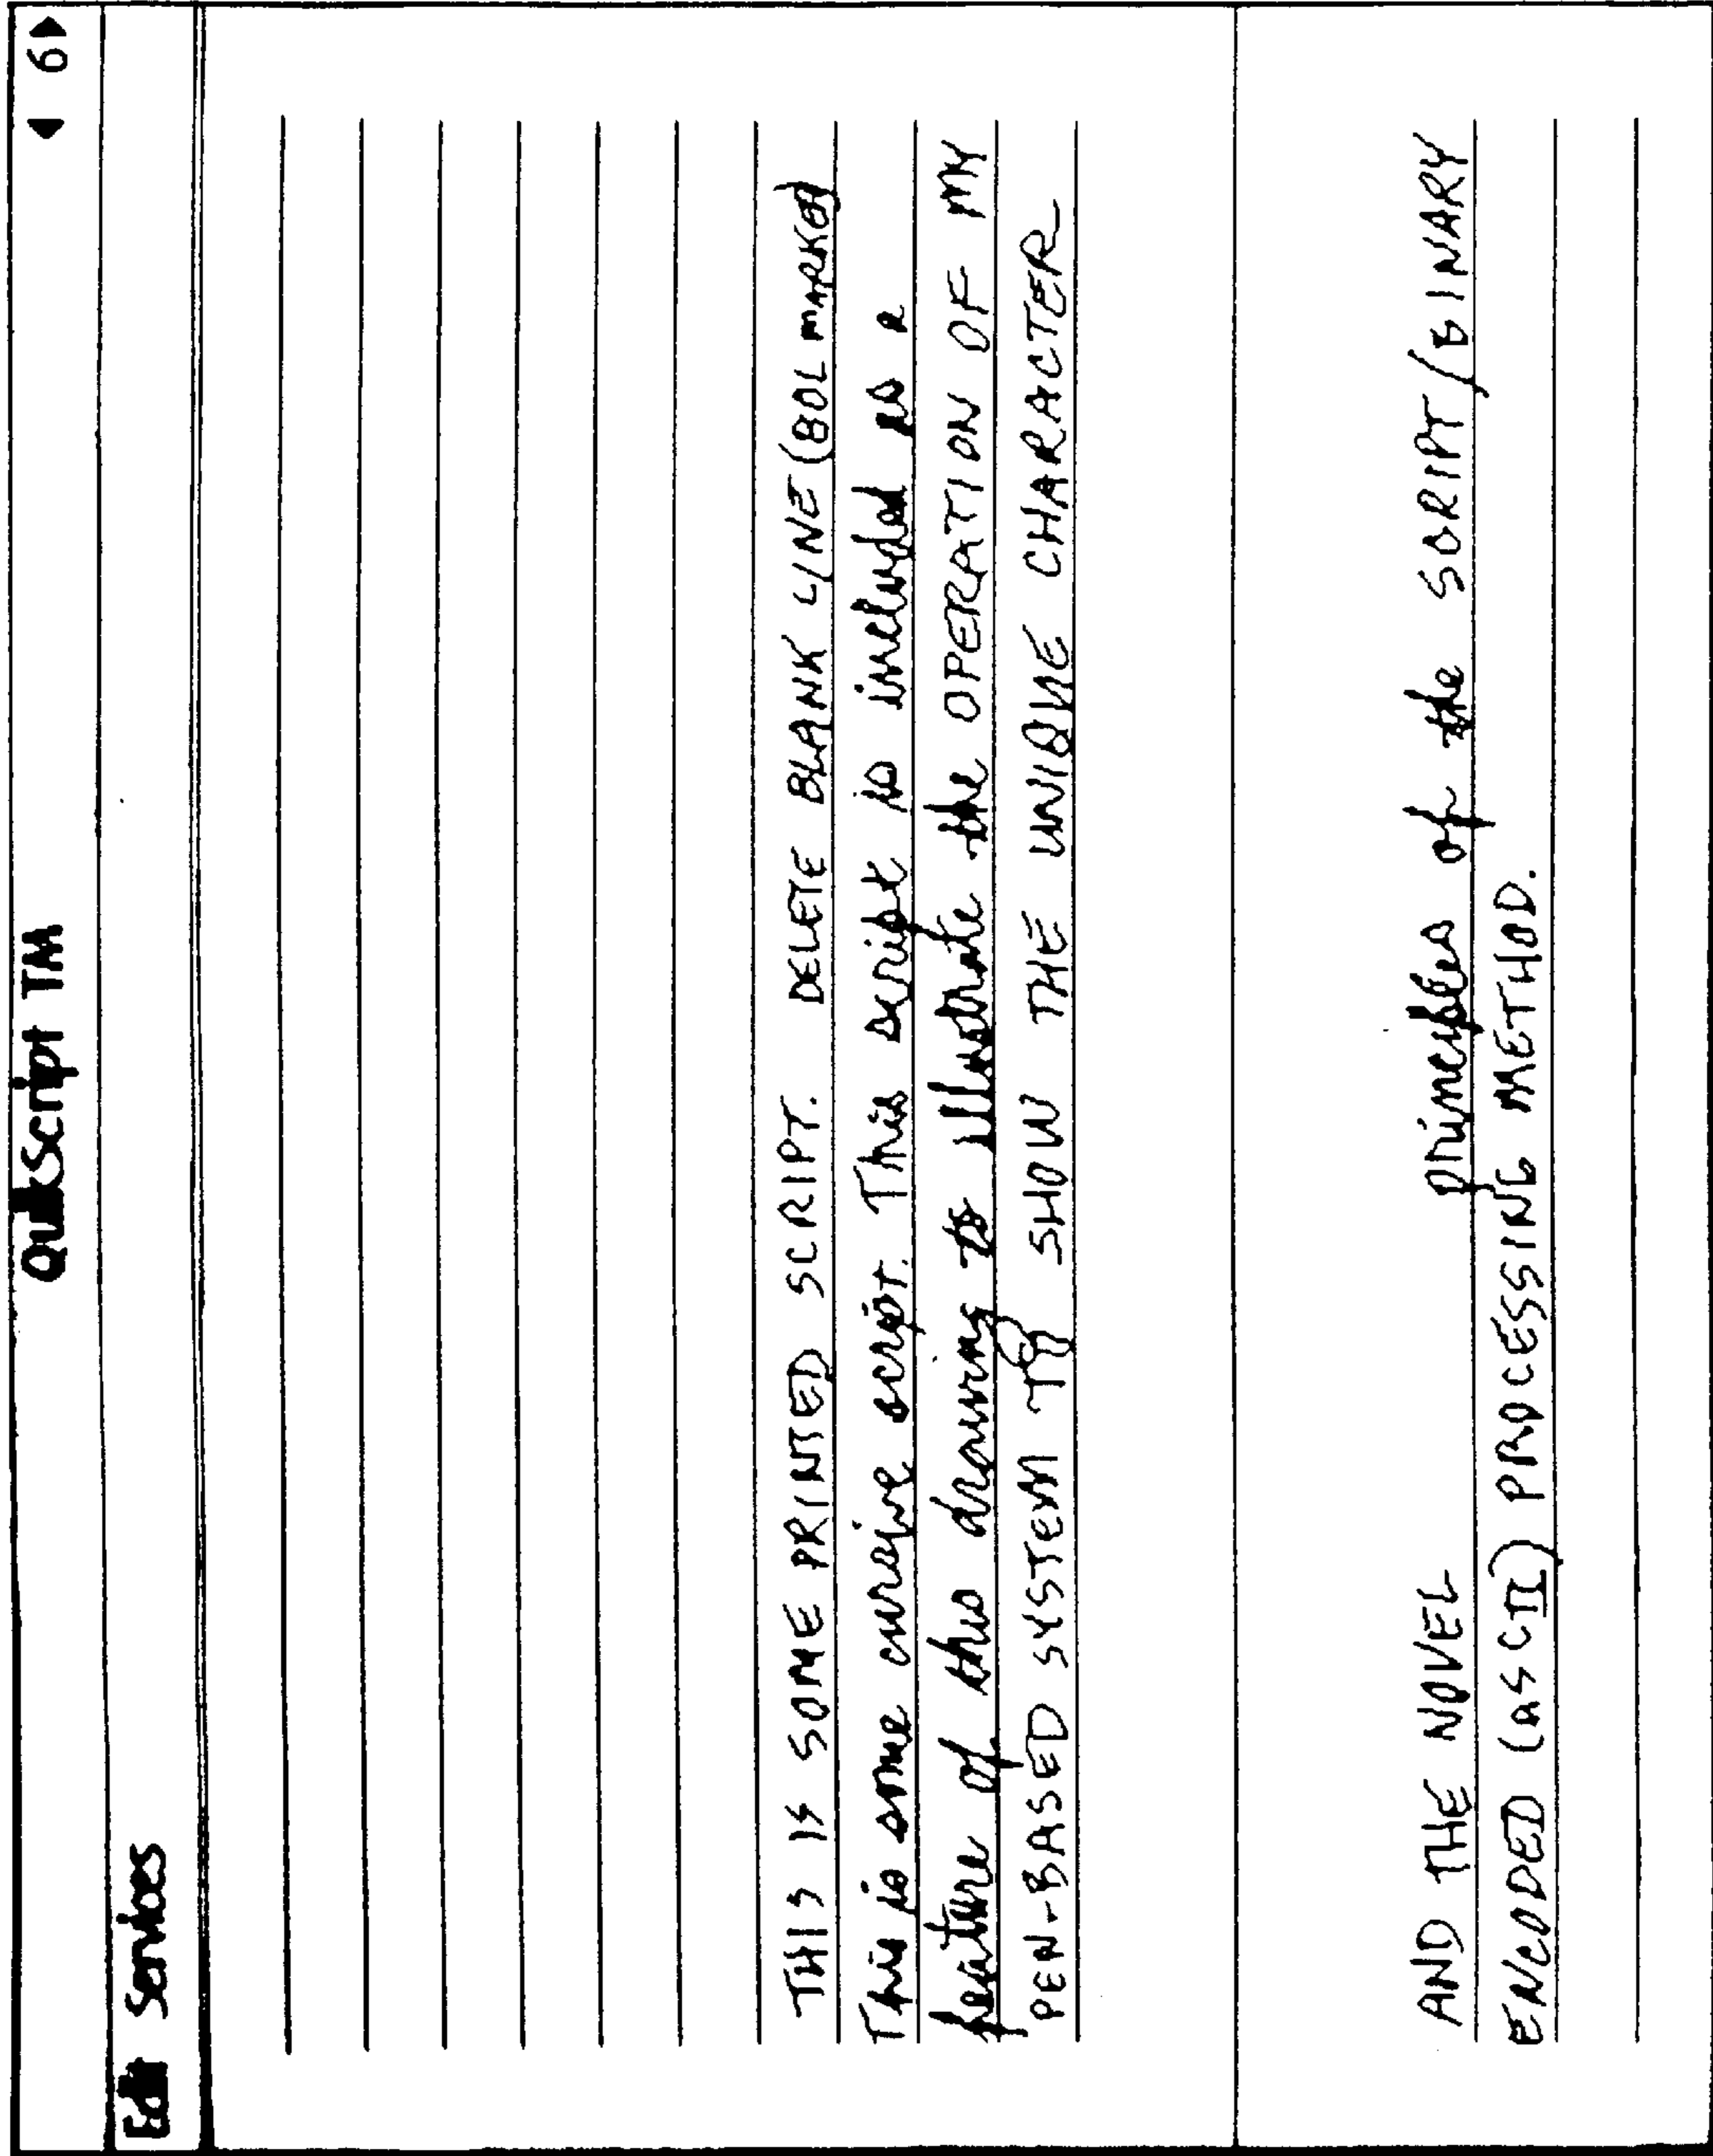 QuikScript TM ◀ 6 ▶
Edit Services
THIS IS SOME PRINTED SCRIPT. DELETE BLANK LINE (BOL MARKED)
This is some cursive script. This script is included as a
feature of this drawing to illustrate the OPERATION OF MY
PEN-BASED SYSTEM TO SHOW THE UNIQUE CHARACTER
AND THE NOVEL principles of the SCRIPT/BINARY
ENCODED (ASCII) PROCESSING METHOD.